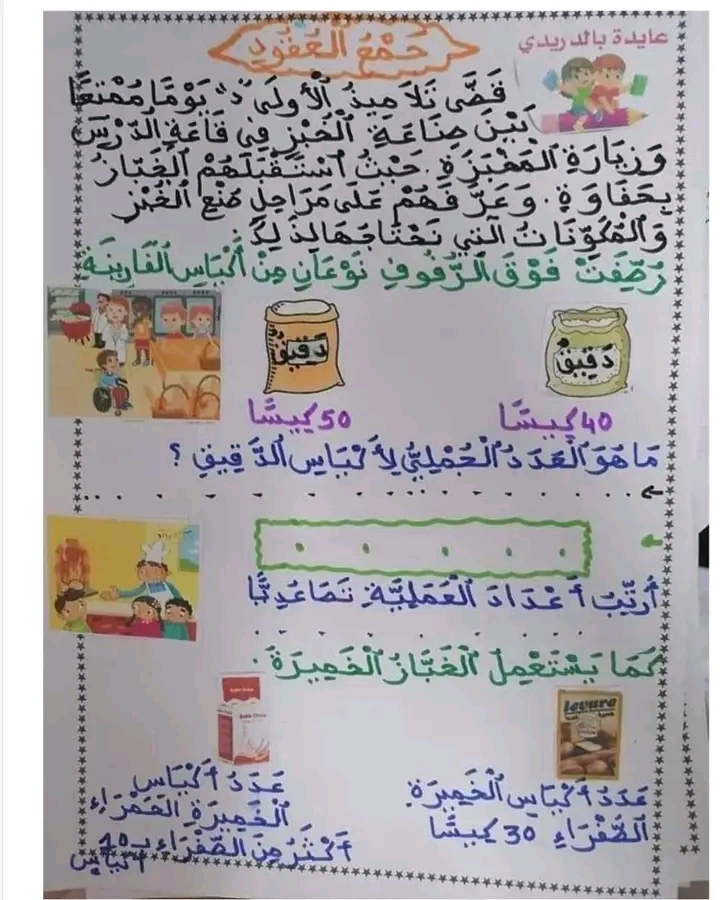 عايدة بالدريدي
جَمْعُ الْعُقُودِ
قَضَّى تَلَامِيذُ الْأُولَى "د" يَوْمًا مُمْتِعًا
بَيْنَ صِنَاعَةِ الْخُبْزِ فِي قَاعَةِ الدَّرْسِ
وَزِيَارَةِ الْمَخْبَزَةِ. حَيْثُ اسْتَقْبَلَهُمْ الْخَبَّازُ
بِحَفَاوَةٍ. وَعَرَّفَهُمْ عَلَى مَرَاحِلِ صُنْعِ الْخُبْزِ
وَالْمُكَوِّنَاتُ الَّتِي نَحْتَاجُهَا لِذَلِكَ.
رُصِّفَتْ فَوْقَ الرُّفُوفِ نَوْعَانِ مِنْ أَكْيَاسِ الْفَارِينَةِ
دَقِيق
دَقِيق
40 كِيسًا
50 كِيسًا
مَا هُوَ الْعَدَدُ الْجُمْلِيُّ لِأَكْيَاسِ الدَّقِيقِ ؟
أُرَتِّبُ أَعْدَادَ الْعَمَلِيَّةِ تَصَاعُدِيًّا
كَمَا يَسْتَعْمِلُ الْخَبَّازُ الْخَمِيرَةَ.
levure
عَدَدُ أَكْيَاسِ الْخَمِيرَةِ
الصَّفْرَاءِ 30 كِيسًا
عَدَدُ أَكْيَاسِ
الْخَمِيرَةِ الْحَمْرَاءِ
أَكْثَرُ مِنَ الصَّفْرَاءِ بـ 10
أَكْيَاسٍ